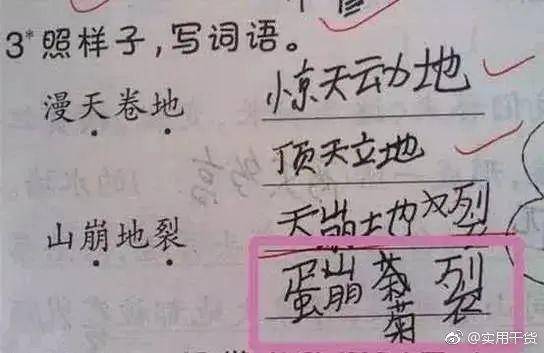 3*照样子,写词语。
漫天卷地 惊天动地
顶天立地
山崩地裂 天崩地裂
蛋崩菊裂
菊
@实用干货